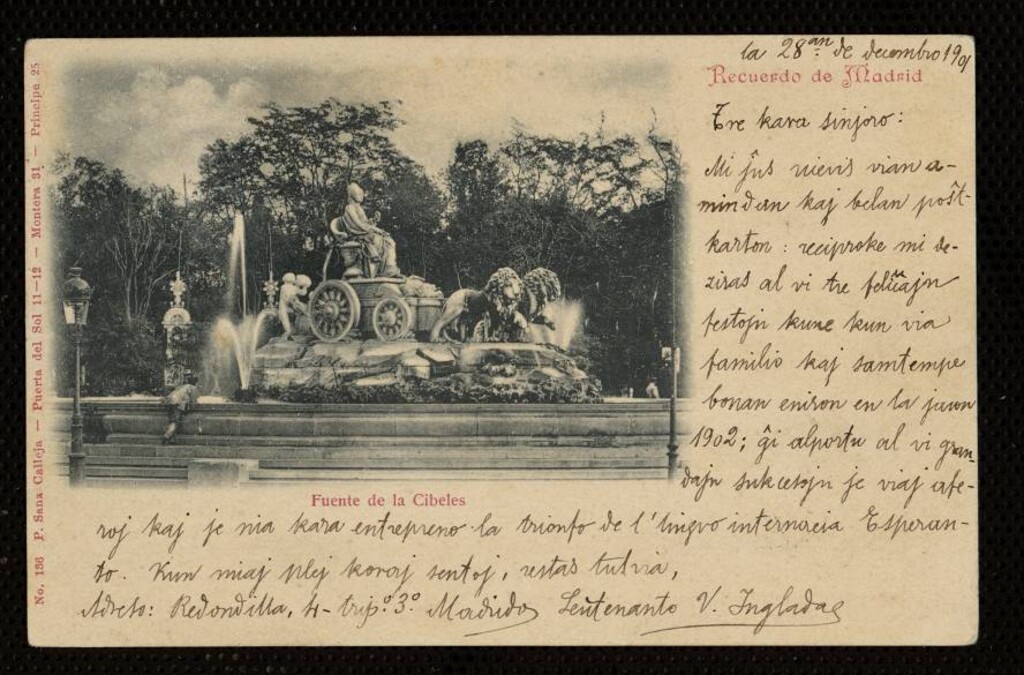 la 28ᵃⁿ de decembro 1901
Recuerdo de Madrid
Tre kara sinjoro:
Mi ĵus ricevis vian a-
mindan kaj belan poŝt-
karton: reciproke mi de-
ziras al vi tre feliĉajn
festojn kune kun via
familio kaj samtempe
bonan eniron en la jaron
1902; ĝi alportu al vi gran-
dajn sukcesojn je viaj afe-
roj kaj je nia kara entrepreno la trionfo de l' lingvo internacia Esperan-
to. Kun miaj plej koraj sentoj, restas tutvia,
Adreso: Redondilla, 4- trip.º 3.º Madrido Leutenanto V. Inglada
Fuente de la Cibeles
No. 136 P. Sanz Calleja — Puerta del Sol 11-12 — Montera 31 — Príncipe 25